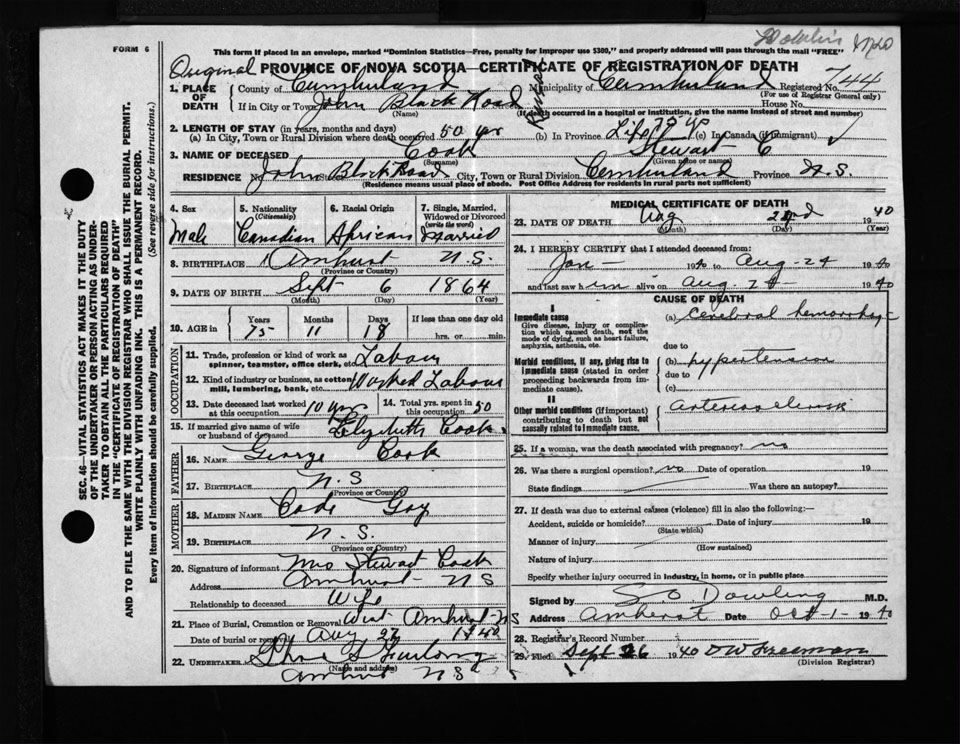 FORM 6
This form if placed in an envelope, marked "Dominion Statistics—Free, penalty for improper use $300," and properly addressed will pass through the mail "FREE"
Original PROVINCE OF NOVA SCOTIA—CERTIFICATE OF REGISTRATION OF DEATH
1. PLACE OF DEATH County of Cumberland Municipality of Cumberland Registered No. 744
(For use of Registrar General only)
If in City or Town John Black Road House No.
(Name) (If death occurred in a hospital or institution, give the name instead of street and number)
2. LENGTH OF STAY (in years, months and days)
(a) In City, Town or Rural Division where death occurred 50 yr (b) In Province Life 75 yr (c) In Canada (if immigrant)
3. NAME OF DECEASED Cook Stewart C
(Surname) (Given name or names)
RESIDENCE No. John Street Black Road City, Town or Rural Division Cumberland Province N.S.
(Residence means usual place of abode. Post Office Address for residents in rural parts not sufficient)
4. Sex Male
5. Nationality (Citizenship) Canadian
6. Racial Origin African
7. Single, Married, Widowed or Divorced (write the word) Married
8. BIRTHPLACE Amhurst N.S.
(Province or Country)
9. DATE OF BIRTH Sept 6 1864
(Month) (Day) (Year)
10. AGE in Years 75 Months 11 Days 18 If less than one day old
hrs. or min.
OCCUPATION
11. Trade, profession or kind of work as spinner, teamster, office clerk, etc. Labour
12. Kind of industry or business, as cotton mill, lumbering, bank, etc. Worked Labour
13. Date deceased last worked at this occupation 10 yrs 14. Total yrs. spent in this occupation 50
15. If married give name of wife or husband of deceased Elizabeth Cook
FATHER
16. NAME George Cook
17. BIRTHPLACE N.S
(Province or Country)
MOTHER
18. MAIDEN NAME Gay
19. BIRTHPLACE N.S.
(Province or Country)
20. Signature of informant Mrs Stewart Cook
Address Amhurst N S
Relationship to deceased Wife
21. Place of Burial, Cremation or Removal West Amhurst N S
Date of burial or removal Aug 27 1940
22. UNDERTAKER Furlong
(Name and address)
Amhurst N S
MEDICAL CERTIFICATE OF DEATH
23. DATE OF DEATH Aug 1940
(Month) (Day) (Year)
24. I HEREBY CERTIFY that I attended deceased from:
Jan 1940 to Aug-24 1940
and last saw him alive on Aug. 1940
CAUSE OF DEATH
I
Immediate cause
Give disease, injury or complication which caused death, not the mode of dying, such as heart failure, asphyxia, asthenia, etc.
(a) cerebral hemorrhage
due to
Morbid conditions, if any, giving rise to immediate cause (stated in order proceeding backwards from immediate cause).
(b) hypertension
due to
(c)
II
Other morbid conditions (if important) contributing to death but not causally related to immediate cause.
25. If a woman, was the death associated with pregnancy? no
26. Was there a surgical operation? no Date of operation 19
State findings Was there an autopsy?
27. If death was due to external causes (violence) fill in also the following:—
Accident, suicide or homicide? Date of injury 19
(State which)
Manner of injury
(How sustained)
Nature of injury
Specify whether injury occurred in industry, in home, or in public place
Signed by Dowling M.D.
Address Amherst Date Oct-1- 1940
28. Registrar's Record Number
29. Filed Sept 26 1940 D W Freeman
(Division Registrar)
SEC. 46—VITAL STATISTICS ACT MAKES IT THE DUTY
OF THE UNDERTAKER OR PERSON ACTING AS UNDER-
TAKER TO OBTAIN ALL THE PARTICULARS REQUIRED
IN THE "CERTIFICATE OF REGISTRATION OF DEATH"
AND TO FILE THE SAME WITH THE DIVISION REGISTRAR WHO SHALL ISSUE THE BURIAL PERMIT.
WRITE PLAINLY WITH UNFADING INK. THIS IS A PERMANENT RECORD.
Every item of information should be carefully supplied. (See reverse side for instructions.)